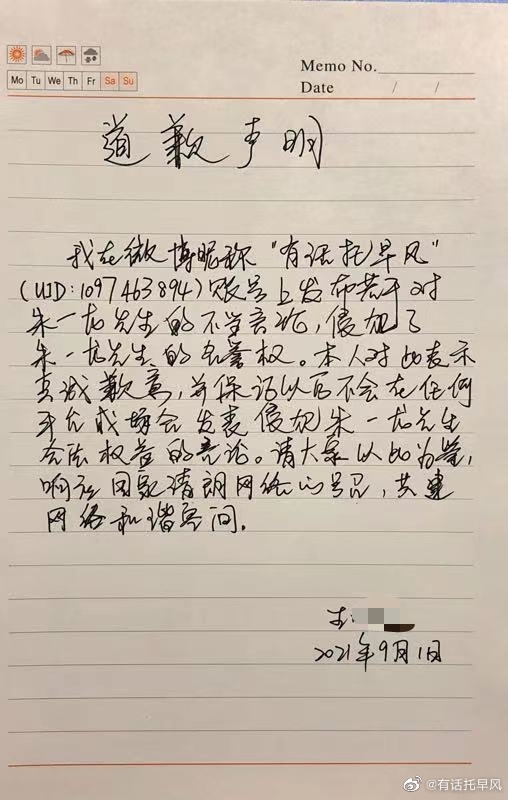 Memo No.
Mo Tu We Th Fr Sa Su
Date / /
道歉声明
我在微博昵称“有话托早风”
(UID:1097463894)账号上发布若干对
朱一龙先生的不当言论,侵犯了
朱一龙先生的名誉权。本人对此表示
真诚歉意,并保证以后不会在任何
平台或场合发表侵犯朱一龙先生
合法权益的言论。请大家以此为鉴,
响应国家清朗网络的号召,共建
网络和谐空间。
2021年9月1日
@有话托早风